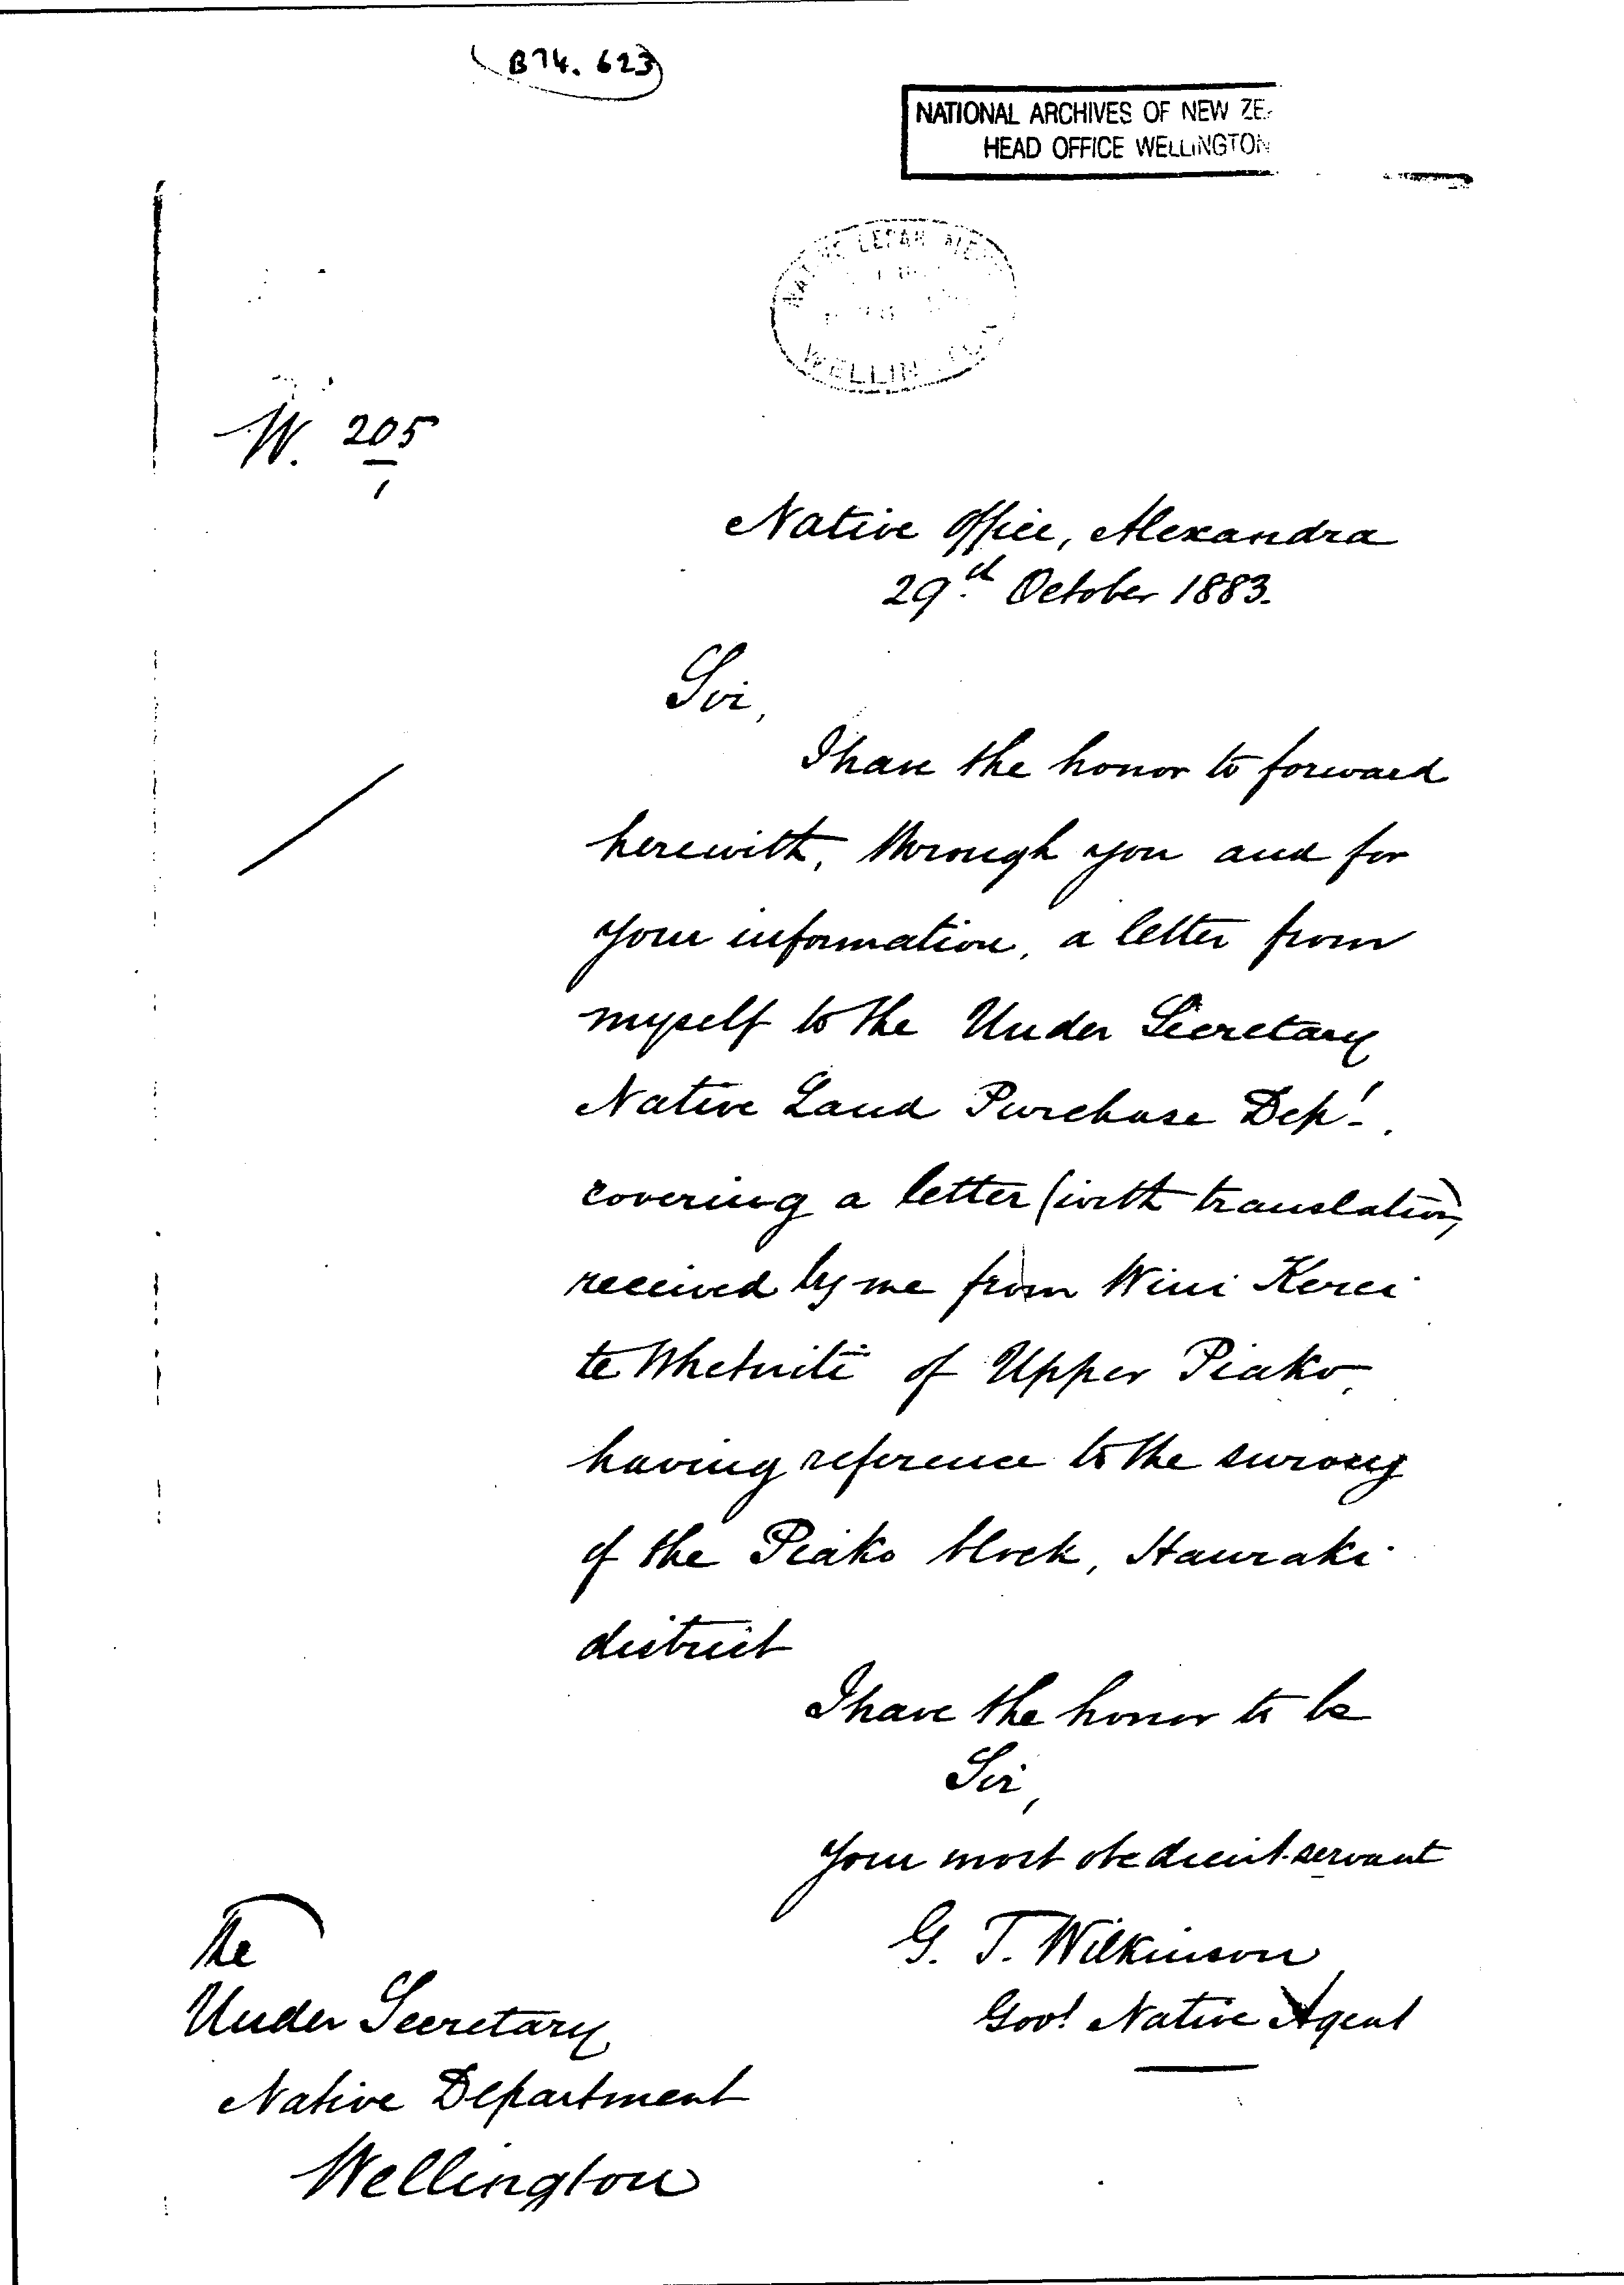 B74. 623
NATIONAL ARCHIVES OF NEW ZE
HEAD OFFICE WELLINGTON
WELLIN
W. 205
1
Native Office, Alexandra
29th October 1883.
Sir,
I have the honor to forward
herewith, through you and for
your information, a letter from
myself to the Under Secretary
Native Land Purchase Dept.
covering a letter (with translation)
received by me from Wini Kerei
te Whetuiti of Upper Piako,
having reference to the survey
of the Piako block, Hauraki
district
I have the honor to be
Sir,
Your most obedient servant
G. T. Wilkinson
Govt Native Agent
The
Under Secretary
Native Department
Wellington